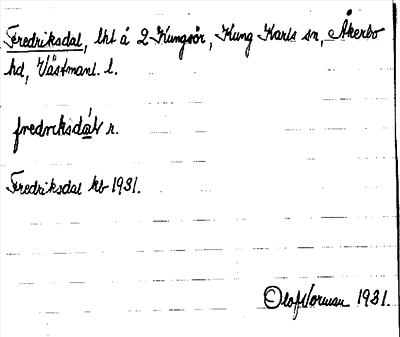 Fredriksdal, lht å 2 Kungsör, Kung Karls sn, Åkerbo
hd, Västmanl. l.
fredriksdál r.
Fredriksdal kb 1931.
Olof Norman 1931.